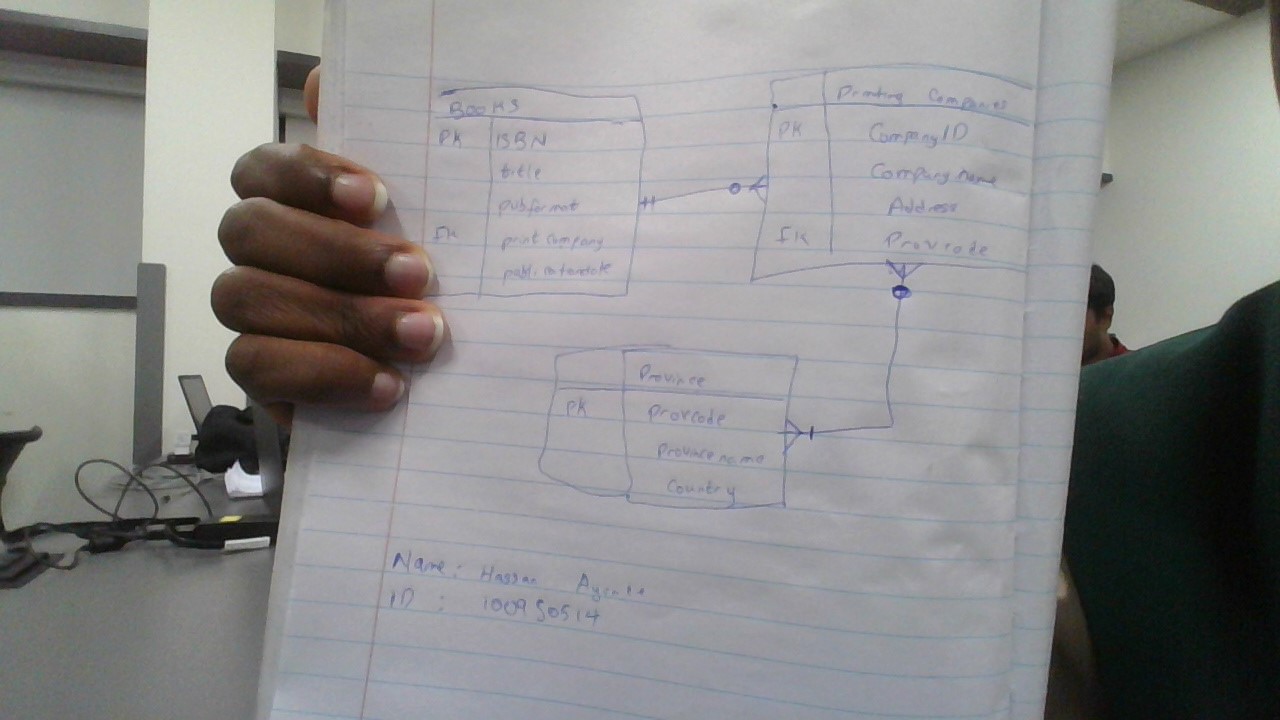 Books
PK ISBN
title
pubformat
FK printcompany
publicationdate
Printing Companies
PK CompanyID
Companyname
Address
FK Provcode
Province
PK provcode
Provincename
Country
Name: Hassan
ID : 100950514